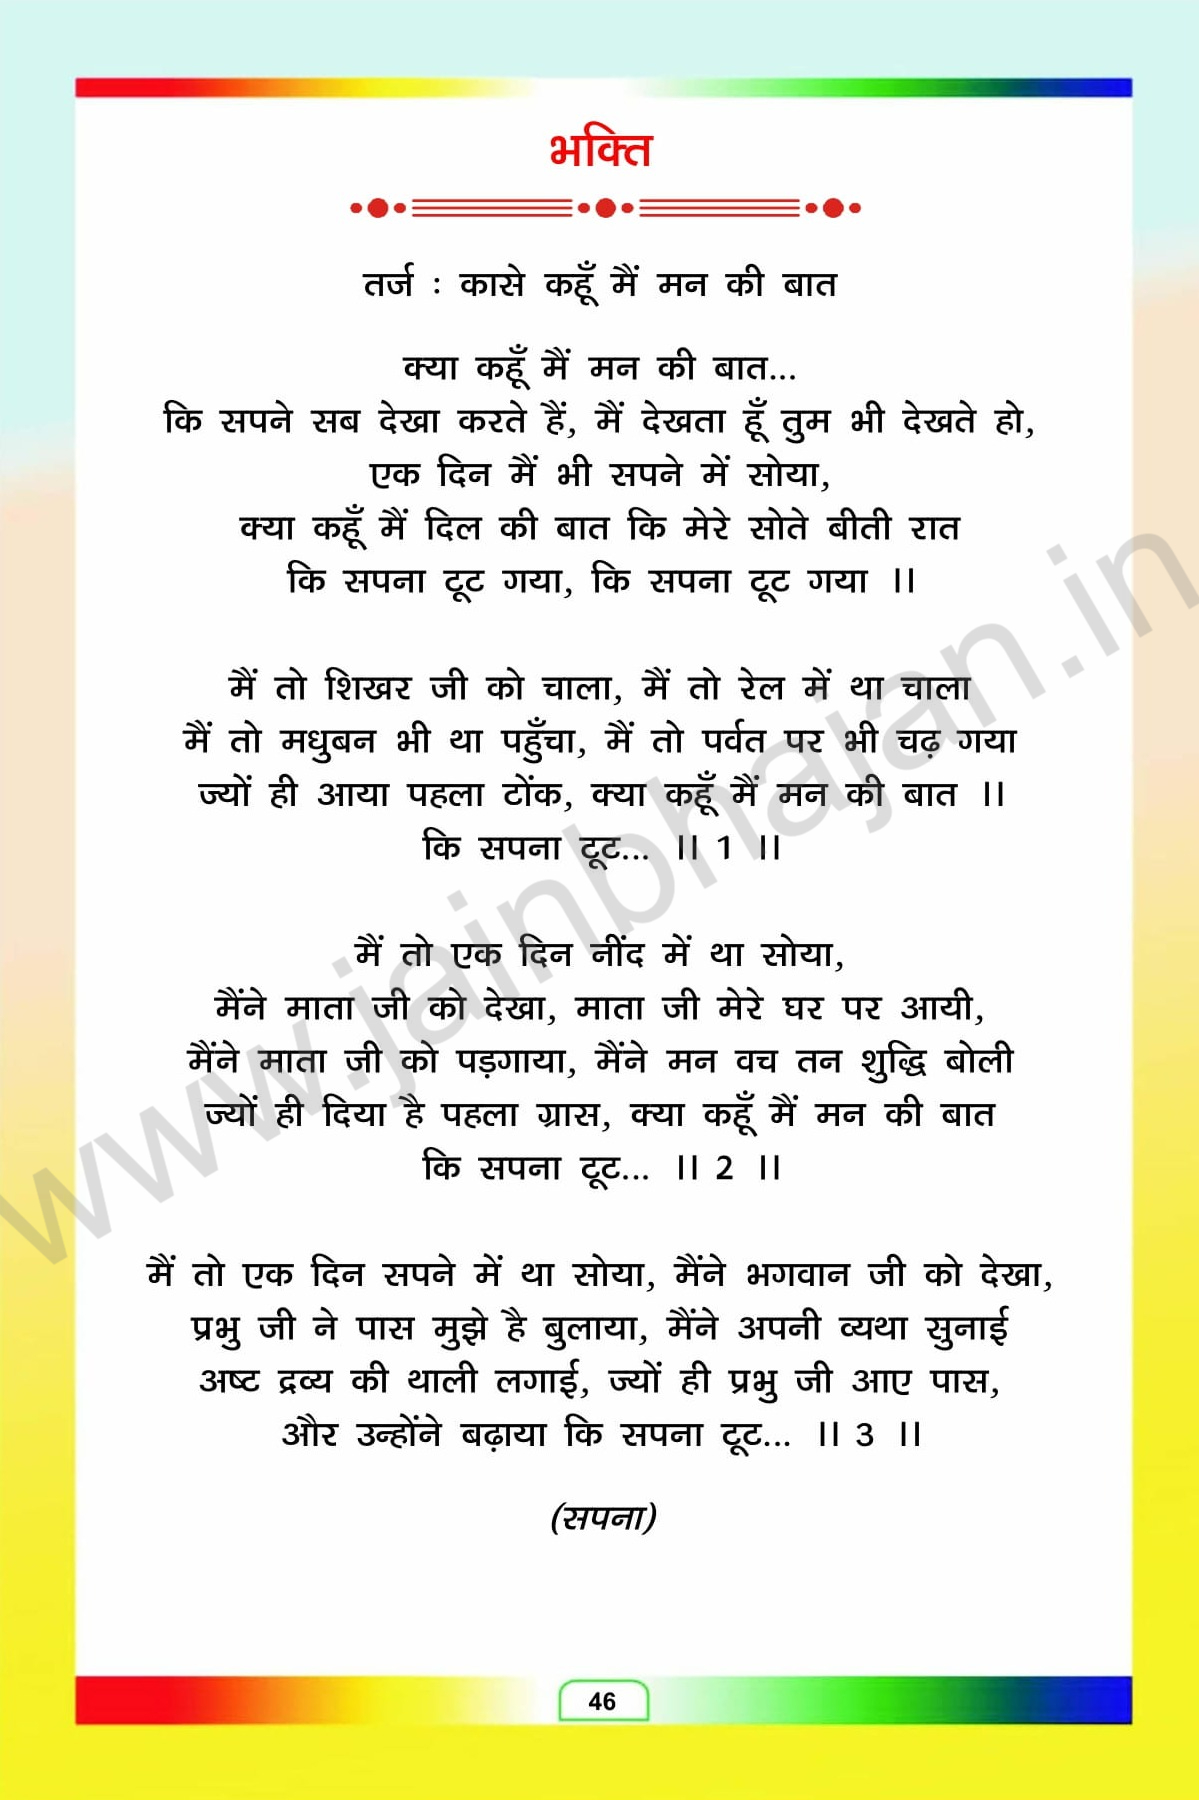 भक्ति
तर्ज : कासे कहूँ मैं मन की बात
क्या कहूँ मैं मन की बात...
कि सपने सब देखा करते हैं, मैं देखता हूँ तुम भी देखते हो,
एक दिन मैं भी सपने में सोया,
क्या कहूँ मैं दिल की बात कि मेरे सोते बीती रात
कि सपना टूट गया, कि सपना टूट गया ।।
मैं तो शिखर जी को चाला, मैं तो रेल में था चाला
मैं तो मधुबन भी था पहुँचा, मैं तो पर्वत पर भी चढ़ गया
ज्यों ही आया पहला टोंक, क्या कहूँ मैं मन की बात ।।
कि सपना टूट... ।। 1 ।।
मैं तो एक दिन नींद में था सोया,
मैंने माता जी को देखा, माता जी मेरे घर पर आयी,
मैंने माता जी को पड़गाया, मैंने मन वच तन शुद्धि बोली
ज्यों ही दिया है पहला ग्रास, क्या कहूँ मैं मन की बात
कि सपना टूट... ।। 2 ।।
मैं तो एक दिन सपने में था सोया, मैंने भगवान जी को देखा,
प्रभु जी ने पास मुझे है बुलाया, मैंने अपनी व्यथा सुनाई
अष्ट द्रव्य की थाली लगाई, ज्यों ही प्रभु जी आए पास,
और उन्होंने बढ़ाया कि सपना टूट... ।। 3 ।।
(सपना)
46
www.jainbhajan.in